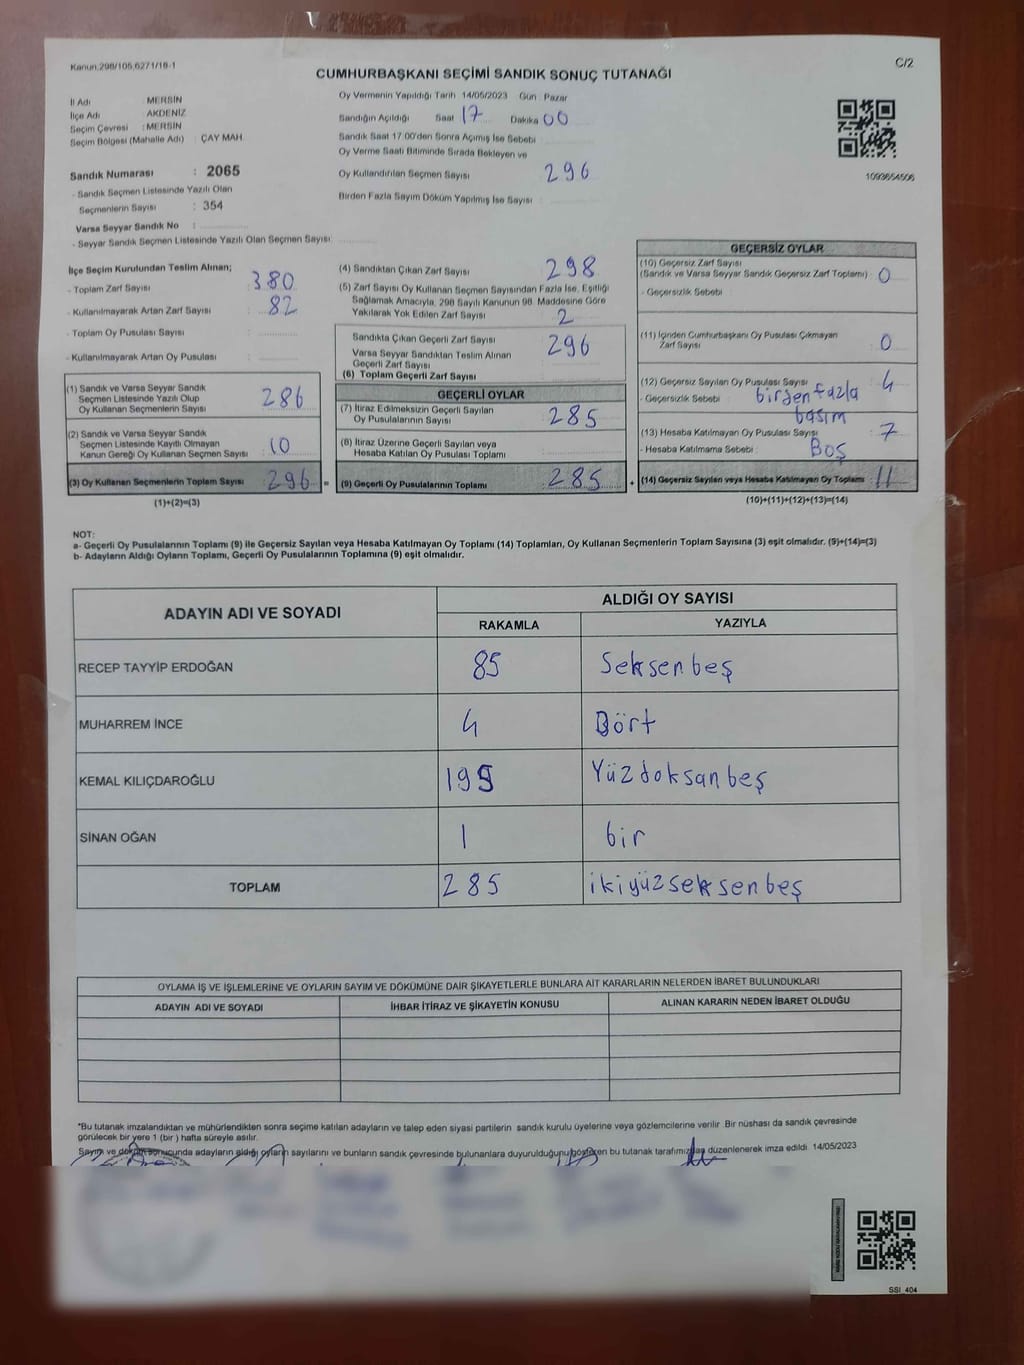 Kanun,298/105,6271/18-1
C/2
CUMHURBAŞKANI SEÇİMİ SANDIK SONUÇ TUTANAĞI
İl Adı : MERSİN
İlçe Adı : AKDENİZ
Seçim Çevresi : MERSİN
Seçim Bölgesi (Mahalle Adı) : ÇAY MAH.
Sandık Numarası : 2065
- Sandık Seçmen Listesinde Yazılı Olan
Seçmenlerin Sayısı : 354
Varsa Seyyar Sandık No :
- Seyyar Sandık Seçmen Listesinde Yazılı Olan Seçmen Sayısı:
Oy Vermenin Yapıldığı Tarih 14/05/2023 Gün : Pazar
Sandığın Açıldığı Saat 17 Dakika 00
Sandık Saat 17.00'den Sonra Açımış İse Sebebi :
Oy Verme Saati Bitiminde Sırada Bekleyen ve
Oy Kullandırılan Seçmen Sayısı 296
Birden Fazla Sayım Döküm Yapılmış İse Sayısı :
1093654506
İlçe Seçim Kurulundan Teslim Alınan;
- Toplam Zarf Sayısı 380
- Kullanılmayarak Artan Zarf Sayısı 82
- Toplam Oy Pusulası Sayısı
- Kullanılmayarak Artan Oy Pusulası
(1) Sandık ve Varsa Seyyar Sandık
Seçmen Listesinde Yazılı Olup
Oy Kullanan Seçmenlerin Sayısı 286
(2) Sandık ve Varsa Seyyar Sandık
Seçmen Listesinde Kayıtlı Olmayan
Kanun Gereği Oy Kullanan Seçmen Sayısı 10
(3) Oy Kullanan Seçmenlerin Toplam Sayısı 296 =
(1)+(2)=(3)
(4) Sandıktan Çıkan Zarf Sayısı 298
(5) Zarf Sayısı Oy Kullanan Seçmen Sayısından Fazla İse, Eşitliği
Sağlamak Amacıyla, 298 Sayılı Kanunun 98. Maddesine Göre
Yakılarak Yok Edilen Zarf Sayısı 2
Sandıkta Çıkan Geçerli Zarf Sayısı 296
Varsa Seyyar Sandıktan Teslim Alınan
Geçerli Zarf Sayısı
(6) Toplam Geçerli Zarf Sayısı
GEÇERLİ OYLAR
(7) İtiraz Edilmeksizin Geçerli Sayılan
Oy Pusulalarının Sayısı 285
(8) İtiraz Üzerine Geçerli Sayılan veya
Hesaba Katılan Oy Pusulası Toplamı
(9) Geçerli Oy Pusulalarının Toplamı 285 +
GEÇERSİZ OYLAR
(10) Geçersiz Zarf Sayısı
(Sandık ve Varsa Seyyar Sandık Geçersiz Zarf Toplamı) 0
- Geçersizlik Sebebi :
(11) İçinden Cumhurbaşkanı Oy Pusulası Çıkmayan
Zarf Sayısı 0
(12) Geçersiz Sayılan Oy Pusulası Sayısı 4
- Geçersizlik Sebebi : birden fazla
basım
(13) Hesaba Katılmayan Oy Pusulası Sayısı 7
- Hesaba Katılmama Sebebi : Boş
(14) Geçersiz Sayılan veya Hesaba Katılmayan Oy Toplamı 11
(10)+(11)+(12)+(13)=(14)
NOT:
a- Geçerli Oy Pusulalarının Toplamı (9) ile Geçersiz Sayılan veya Hesaba Katılmayan Oy Toplamı (14) Toplamları, Oy Kullanan Seçmenlerin Toplam Sayısına (3) eşit olmalıdır. (9)+(14)=(3)
b- Adayların Aldığı Oyların Toplamı, Geçerli Oy Pusulalarının Toplamına (9) eşit olmalıdır.
ADAYIN ADI VE SOYADI
ALDIĞI OY SAYISI
RAKAMLA YAZIYLA
RECEP TAYYİP ERDOĞAN 85 Seksenbeş
MUHARREM İNCE 4 Dört
KEMAL KILIÇDAROĞLU 195 Yüzdoksanbeş
SİNAN OĞAN 1 bir
TOPLAM 285 ikiyüzseksenbeş
OYLAMA İŞ VE İŞLEMLERİNE VE OYLARIN SAYIM VE DÖKÜMÜNE DAİR ŞİKAYETLERLE BUNLARA AİT KARARLARIN NELERDEN İBARET BULUNDUKLARI
ADAYIN ADI VE SOYADI İHBAR İTİRAZ VE ŞİKAYETİN KONUSU ALINAN KARARIN NEDEN İBARET OLDUĞU
*Bu tutanak imzalandıktan ve mühürlendikten sonra seçime katılan adayların ve talep eden siyasi partilerin sandık kurulu üyelerine veya gözlemcilerine verilir. Bir nüshası da sandık çevresinde
görülecek bir yere 1 (bir ) hafta süreyle asılır.
Sayım ve döküm sonucunda adayların aldığı oyların sayılarını ve bunların sandık çevresinde bulunanlara duyurulduğunu gösteren bu tutanak tarafımızdan düzenlenerek imza edildi. 14/05/2023
SSI_404